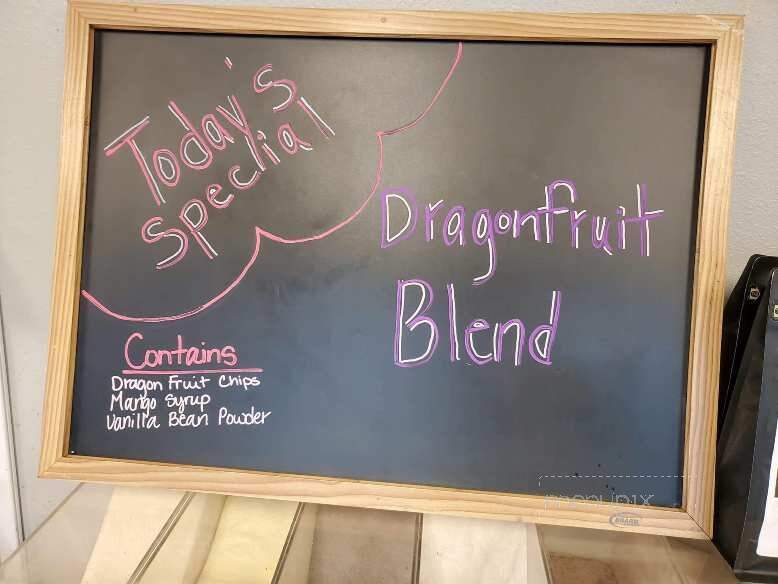 Today's
Special
Dragonfruit
Blend
Contains
Dragon Fruit Chips
Mango Syrup
Vanilla Bean Powder